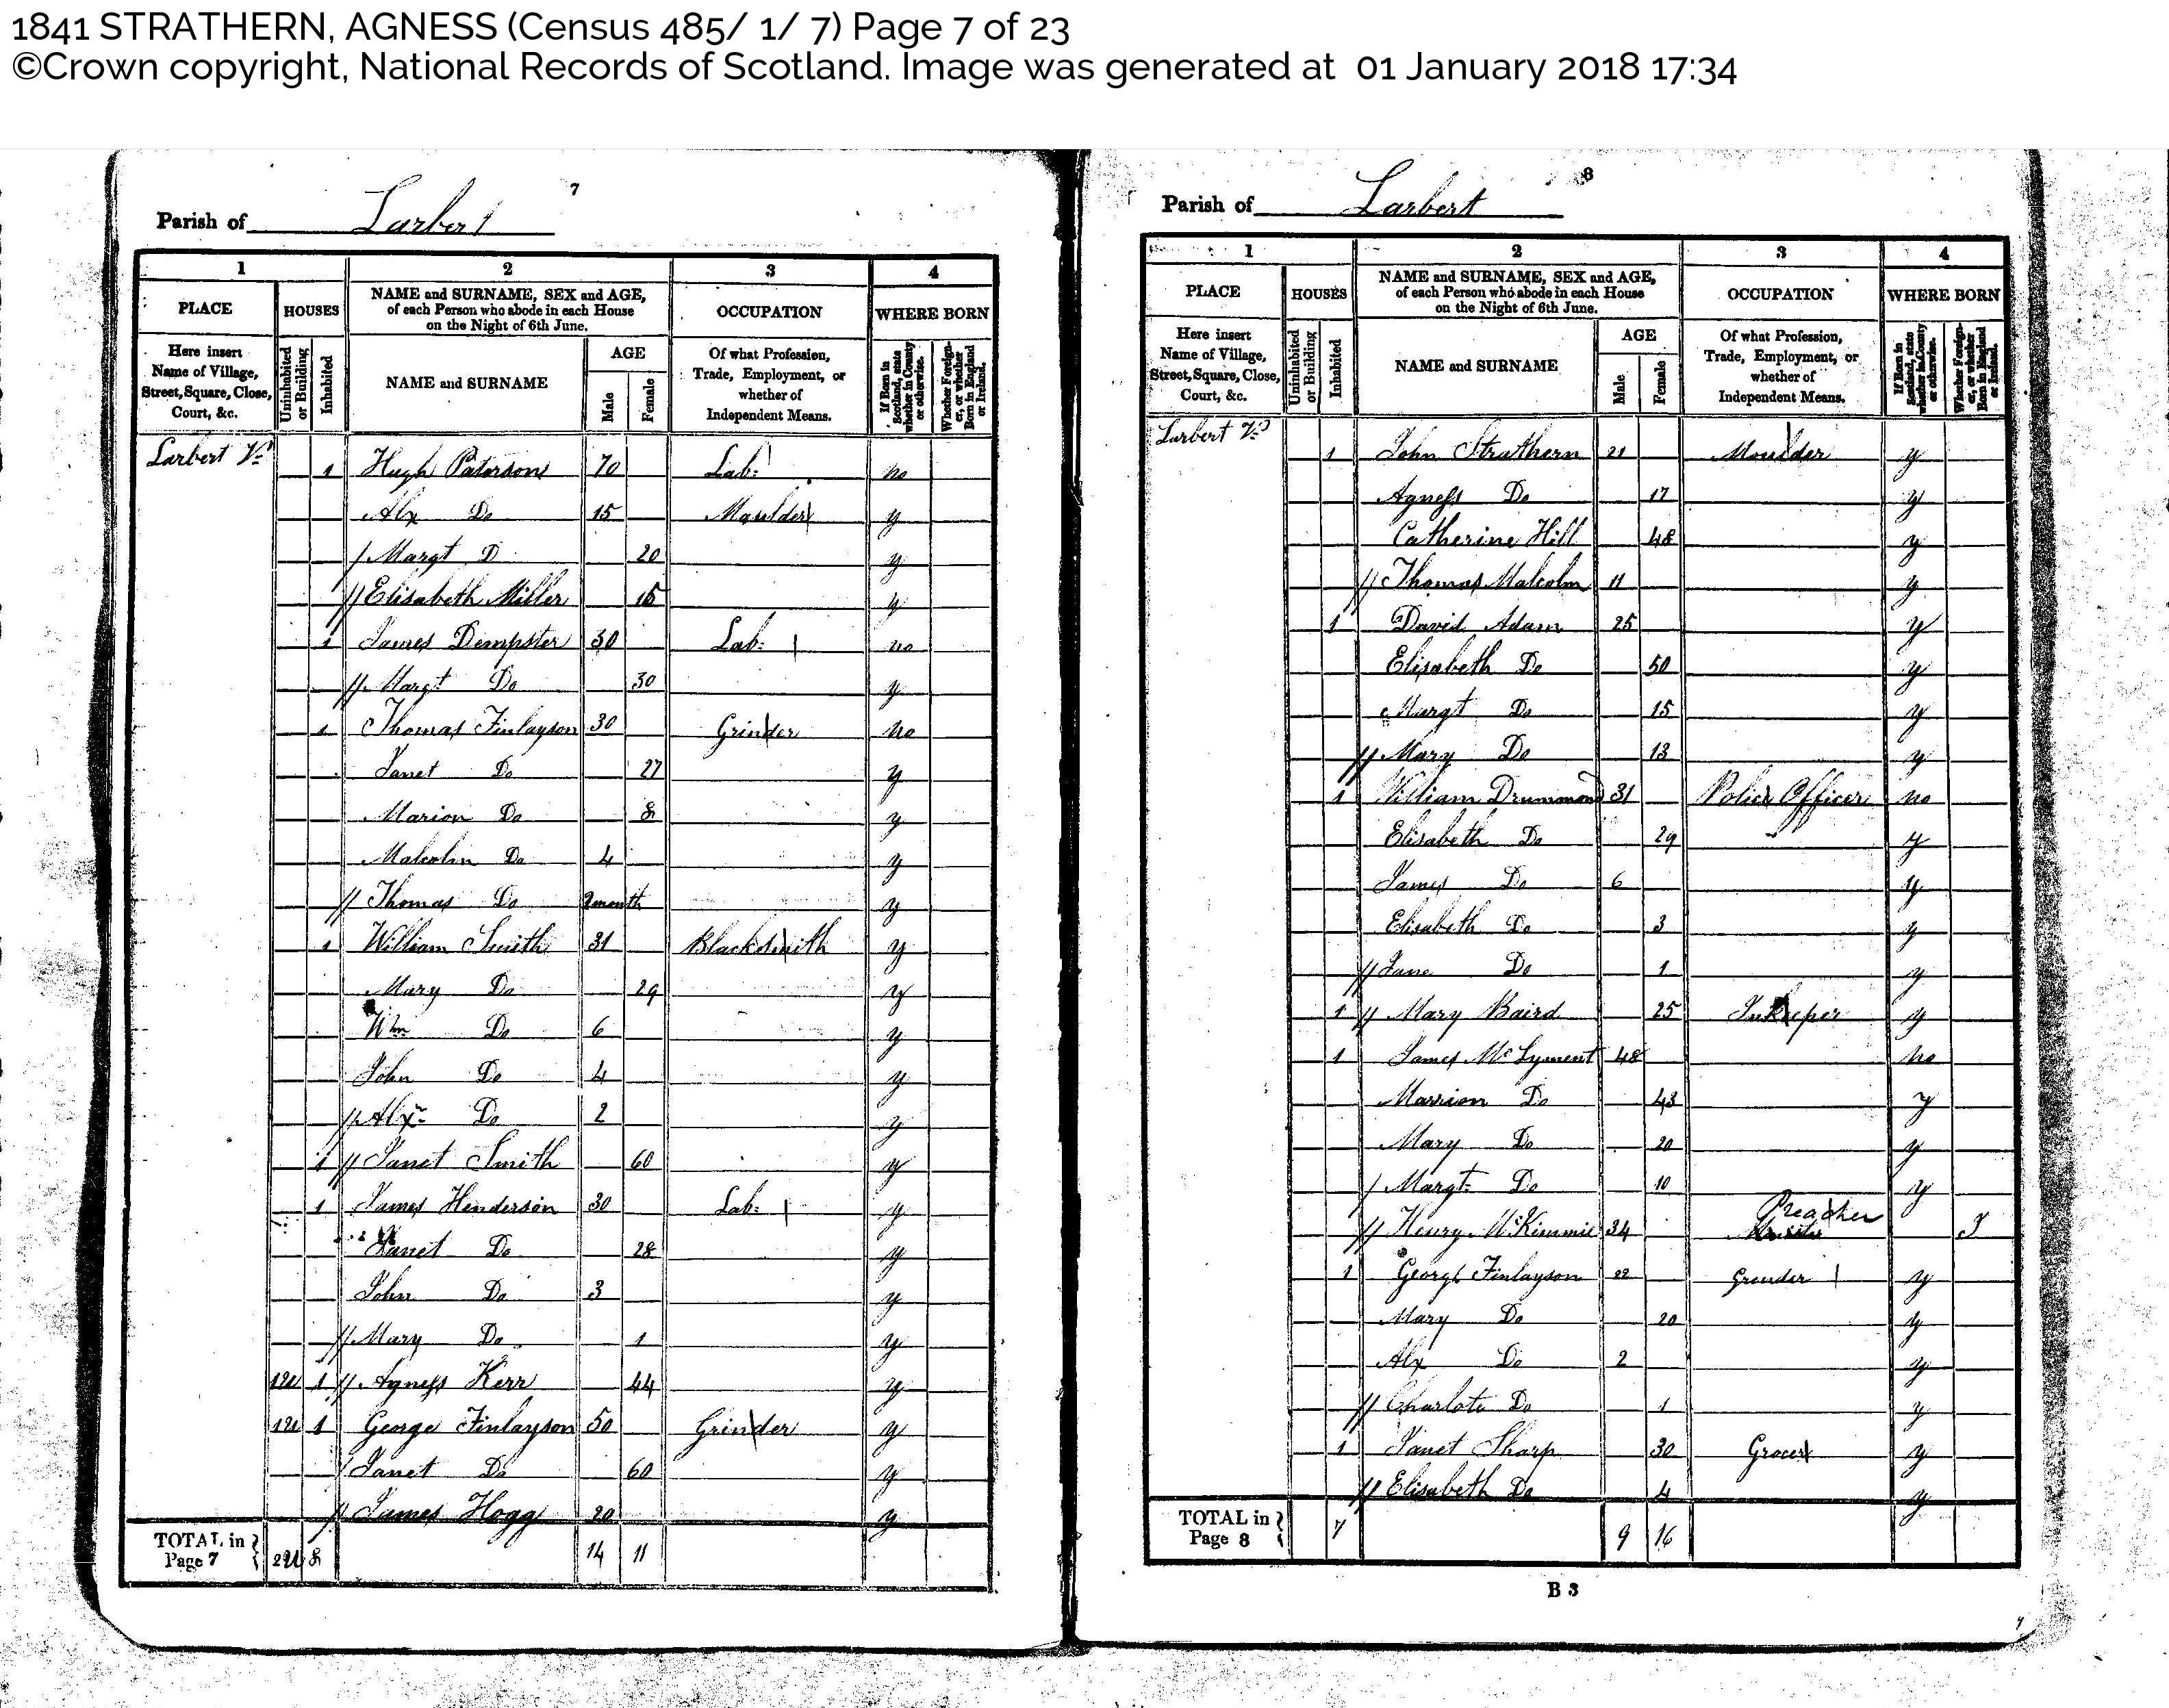 1841 STRATHERN, AGNESS (Census 485/ 1/ 7) Page 7 of 23
©Crown copyright, National Records of Scotland. Image was generated at 01 January 2018 17:34
7
Parish of Larbert
1 2 3 4
PLACE HOUSES NAME and SURNAME, SEX and AGE, of each Person who abode in each House on the Night of 6th June. OCCUPATION WHERE BORN
Here insert Name of Village, Street, Square, Close, Court, &c. Uninhabited or Building Inhabited NAME and SURNAME AGE Male Female Of what Profession, Trade, Employment, or whether of Independent Means. If Born in Scotland, state whether in County or otherwise. Whether Foreigner, or whether Born in England or Ireland.
Larbert Vil 1 Hugh Paterson 70 Lab: no
Alx Do 15 Moulder y
/ Margt D 20 y
// Elisabeth Miller 15 y
1 James Dempster 30 Lab: no
// Margt Do 30 y
1 Thomas Finlayson 30 Grinder no
Janet Do 27 y
Marion Do 8 y
Malcolm Do 4 y
// Thomas Do 2 month y
1 William Smith 31 Blacksmith y
Mary Do 29 y
Wm Do 6 y
John Do 4 y
// Alxr Do 2 y
1 // Janet Smith 60 y
1 James Henderson 30 Lab: y
Janet Do 28 y
John Do 3 y
// Mary Do 1 y
1 // Agness Kerr 44 y
1 George Finlayson 50 Grinder y
/ Janet Do 60 y
// James Hogg 20 y
TOTAL in Page 7 8 14 11
8
Parish of Larbert
1 2 3 4
PLACE HOUSES NAME and SURNAME, SEX and AGE, of each Person who abode in each House on the Night of 6th June. OCCUPATION WHERE BORN
Here insert Name of Village, Street, Square, Close, Court, &c. Uninhabited or Building Inhabited NAME and SURNAME AGE Male Female Of what Profession, Trade, Employment, or whether of Independent Means. If Born in Scotland, state whether in County or otherwise. Whether Foreigner, or whether Born in England or Ireland.
Larbert Vil 1 John Strathern 21 Moulder y
Agness Do 17 y
Catherine Hill 48 y
// Thomas Malcolm 11 y
1 David Adam 25 y
Elisabeth Do 50 y
Margt Do 15 y
// Mary Do 13 y
1 William Drummond 31 Police Officer no
Elisabeth Do 29 y
James Do 6 y
Elisabeth Do 3 y
// Jane Do 1 y
1 // Mary Baird 25 Inkeeper y
1 James McLyment 48 no
Marrion Do 43 y
Mary Do 20 y
/ Margt Do 10 y
// Henry McKimmie 34 Preacher I
1 George Finlayson 22 Grender y
Mary Do 20 y
Alx Do 2 y
// Charlote Do 1 y
1 Janet Sharp 30 Grocer y
// Elisabeth Do 4 y
TOTAL in Page 8 7 9 16
B 3